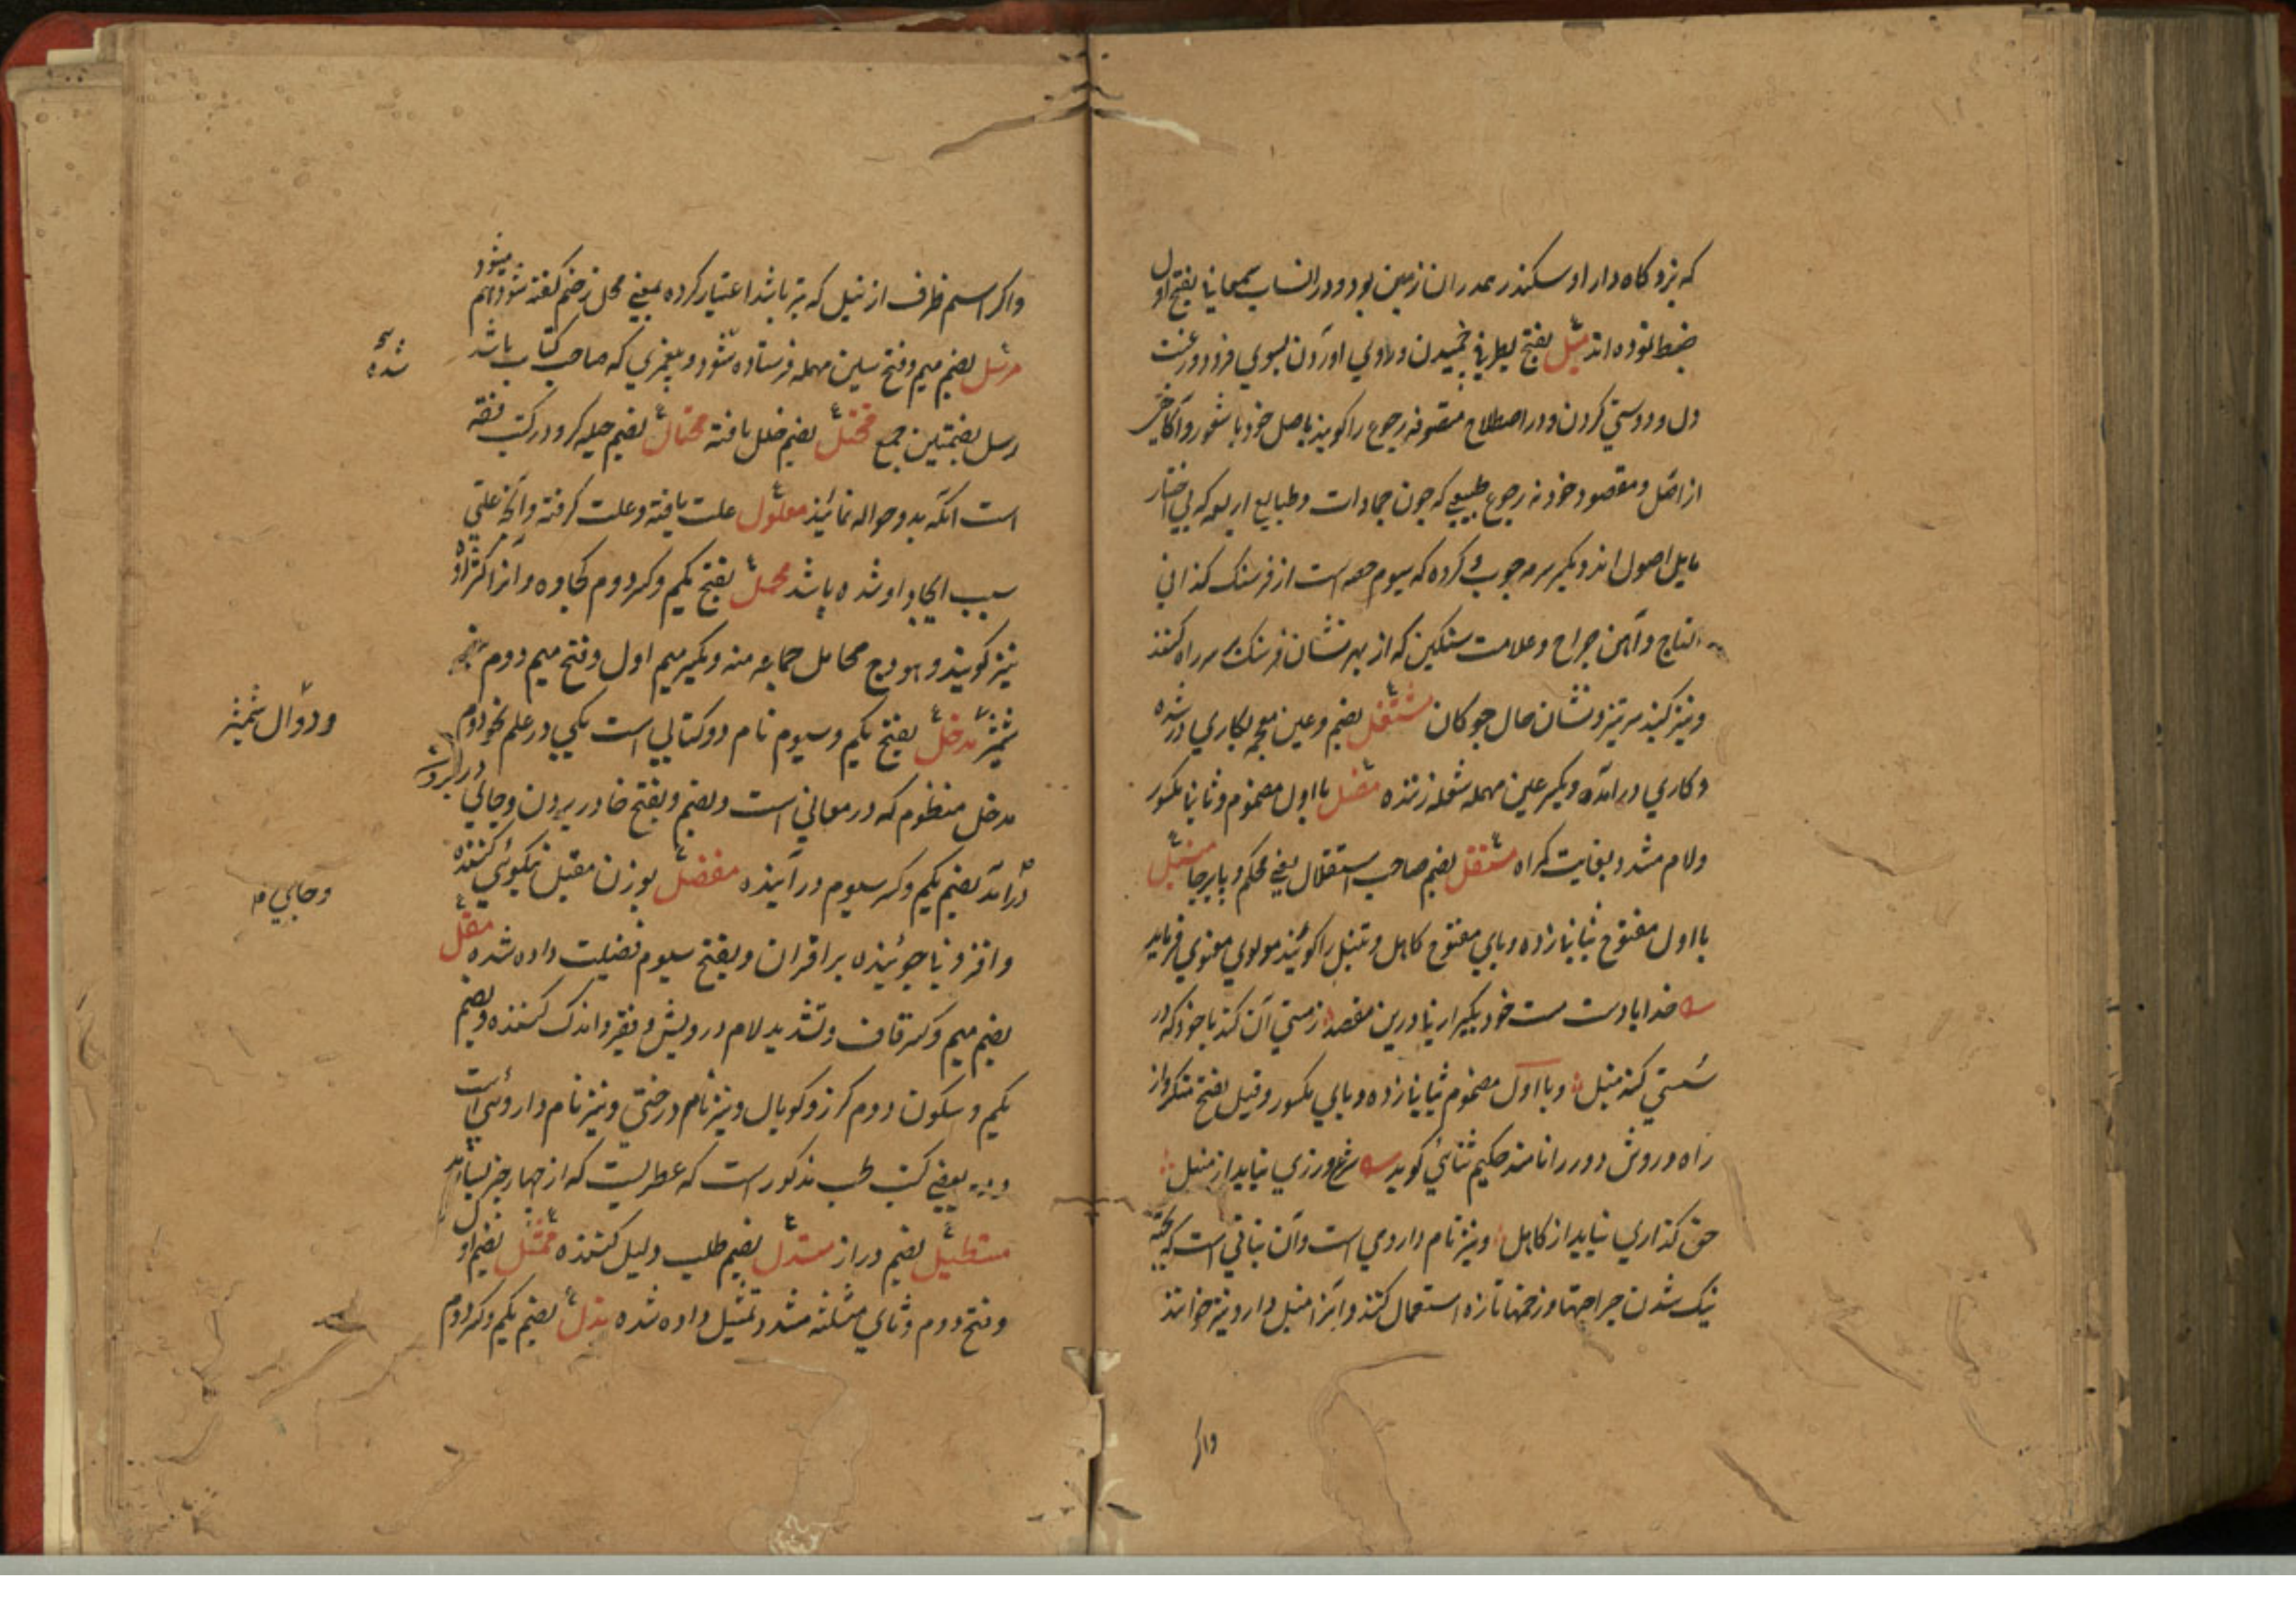 که نزد کاه دارا و سکندر همدران زمین بود و در انساب سمعانی بفتح اول
ضبط نموده اند میل بفتح یعنی خمیدن و آوردن بسوی فرود و رغبت
دل و دوستی کردن و در اصطلاح متصوفه رجوع را کویند باصل خود با شعور و آکاهی
از اصل و مقصود خود نه رجوع طبیعی که چون جمادات و طبایع اربعه که بی اختیار
مایل اصول اند و بکسر سرمه چوب و کروه که سیوم حصه است از فرسنک کذا فی
التاج و آهن جراح و علامت سنکین که از بهر نشان فرسنک بر سر راه کنند
و نیز کنبد سر تیز و نشان حال چوکان مشتغل بضم و غین معجمه بکاری در شده
و کاری در آمده و بکسر عین مهمله شعله زننده مضل با اول مضموم و ثانی مکسور
و لام مشدد بغایت کمراه مستقل بضم صاحب استقلال یعنی محکم و پا برجا منبل
با اول مفتوح بثانی زده و بای مفتوح کاهل و تنبل را کویند مولوی معنوی فرماید
خدایا دست مست خود بکیر ار نه درین مقصد ز مستی آن کند با خود که در
مستی کند منبل و با اول مضموم بثانی زده و بای مکسور و قیل بفتح منکر و از
راه و روش دور را نامند حکیم ثنائی کوید شرع ورزی نیاید از منبل
حق کذاری نیاید از کاهل و نیز نام داروی است و آن نباتی است که بجهة
نیک شدن جراحتها و زخمها تازه استعمال کنند و آنرا منبل دارو نیز خوانند
واکر
واکر اسم ظرف از نیل که تیر باشد اعتبار کرده بمعنی محل زخم کفته شود هم میشود
مرسل بضم میم و فتح سین مهمله فرستاده شود و پیغمبری که صاحب کتاب باشد
شده
رسل بضمتین جمع مختل بضم خلل یافته محتال بضم حیله کر و در کتب فقه
است آنکه بدو حواله نمایند معلول علت یافته و علت کرفته و آنچه علتی
سبب ایجاد او شده باشد محمل بفتح یکم و کسر دوم کجاوه و آنرا
نیز کویند و هودج محامل جماعه منه و بکسر میم اول و فتح میم دوم
شمشیر مدخل بفتح یکم و سیوم نام دو کتابی است یکی در علم نجوم دوم
و دوال شمشیر
مدخل منظوم که در معانی است و بضم و بفتح خا در بردن و جای
درآمد بضم یکم و کسر سیوم در آینده مفضل بوزن مقبل نیکوئی کننده
و جای
و افزونی جوئینده بر اقران و بفتح سیوم فضیلت داده شده مقل
بضم میم و کسر قاف و تشدید لام درویش و فقیر و اندک کننده و بضم
یکم و سکون دوم کرز و کوپال و نیز نام درختی و نیز نام داروئی است
و در بعضی کتب طب مذکور است که عطریست که از چهار چیز بسازند
مستطیل بضم دراز مستدل بضم طلب دلیل کننده ممثل بضم اول
و فتح دوم و ثای مثلثه مشدد تمثیل داده شده مذل بضم یکم و کسر دوم